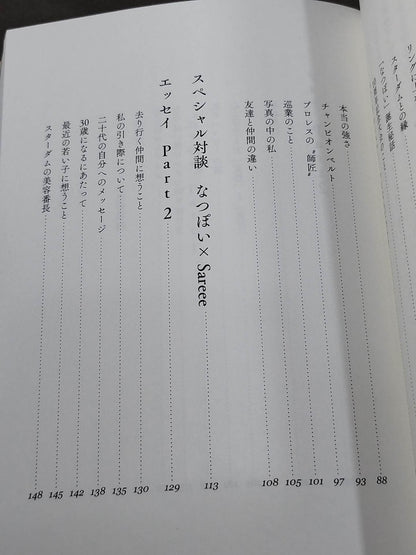 リング
スターダムとの縁
「なつぽい」誕生秘話
本当の強さ 88
チャンピオンベルト 93
プロレスの〝師匠〟 97
巡業のこと 101
写真の中の私 105
友達と仲間の違い 108
スペシャル対談 なつぽい×Sareee 113
エッセイ Part 2 129
去り行く仲間に想うこと 130
私の引き際について 135
二十代の自分へのメッセージ 138
30歳になるにあたって 142
最近の若い子に想うこと 145
スターダムの美容番長 148